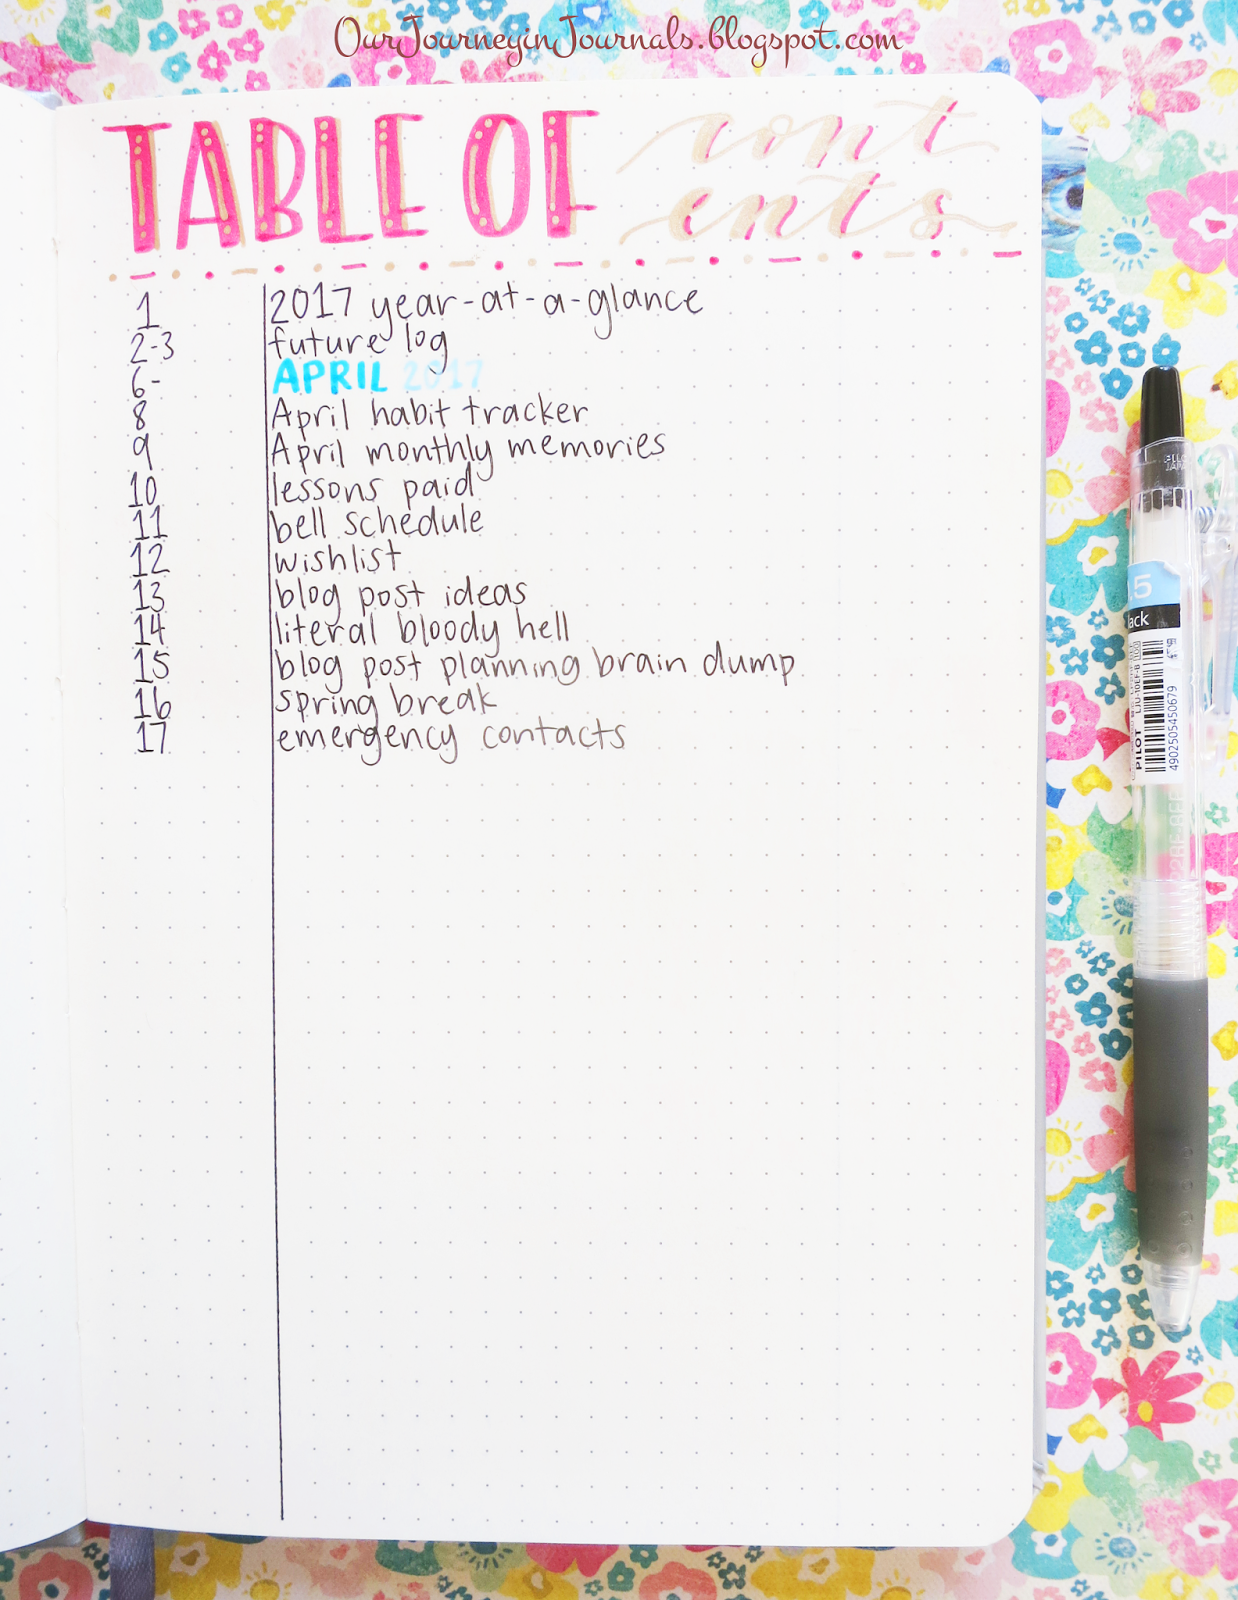 OurJourneyinJournals.blogspot.com
TABLE OF cont
ents
1 2017 year-at-a-glance
2-3 future log
6- APRIL 2017
8 April habit tracker
9 April monthly memories
10 lessons paid
11 bell schedule
12 wishlist
13 blog post ideas
14 literal bloody hell
15 blog post planning brain dump
16 spring break
17 emergency contacts
.5
lack
PILOT LJU-10EF-B
4902505450679